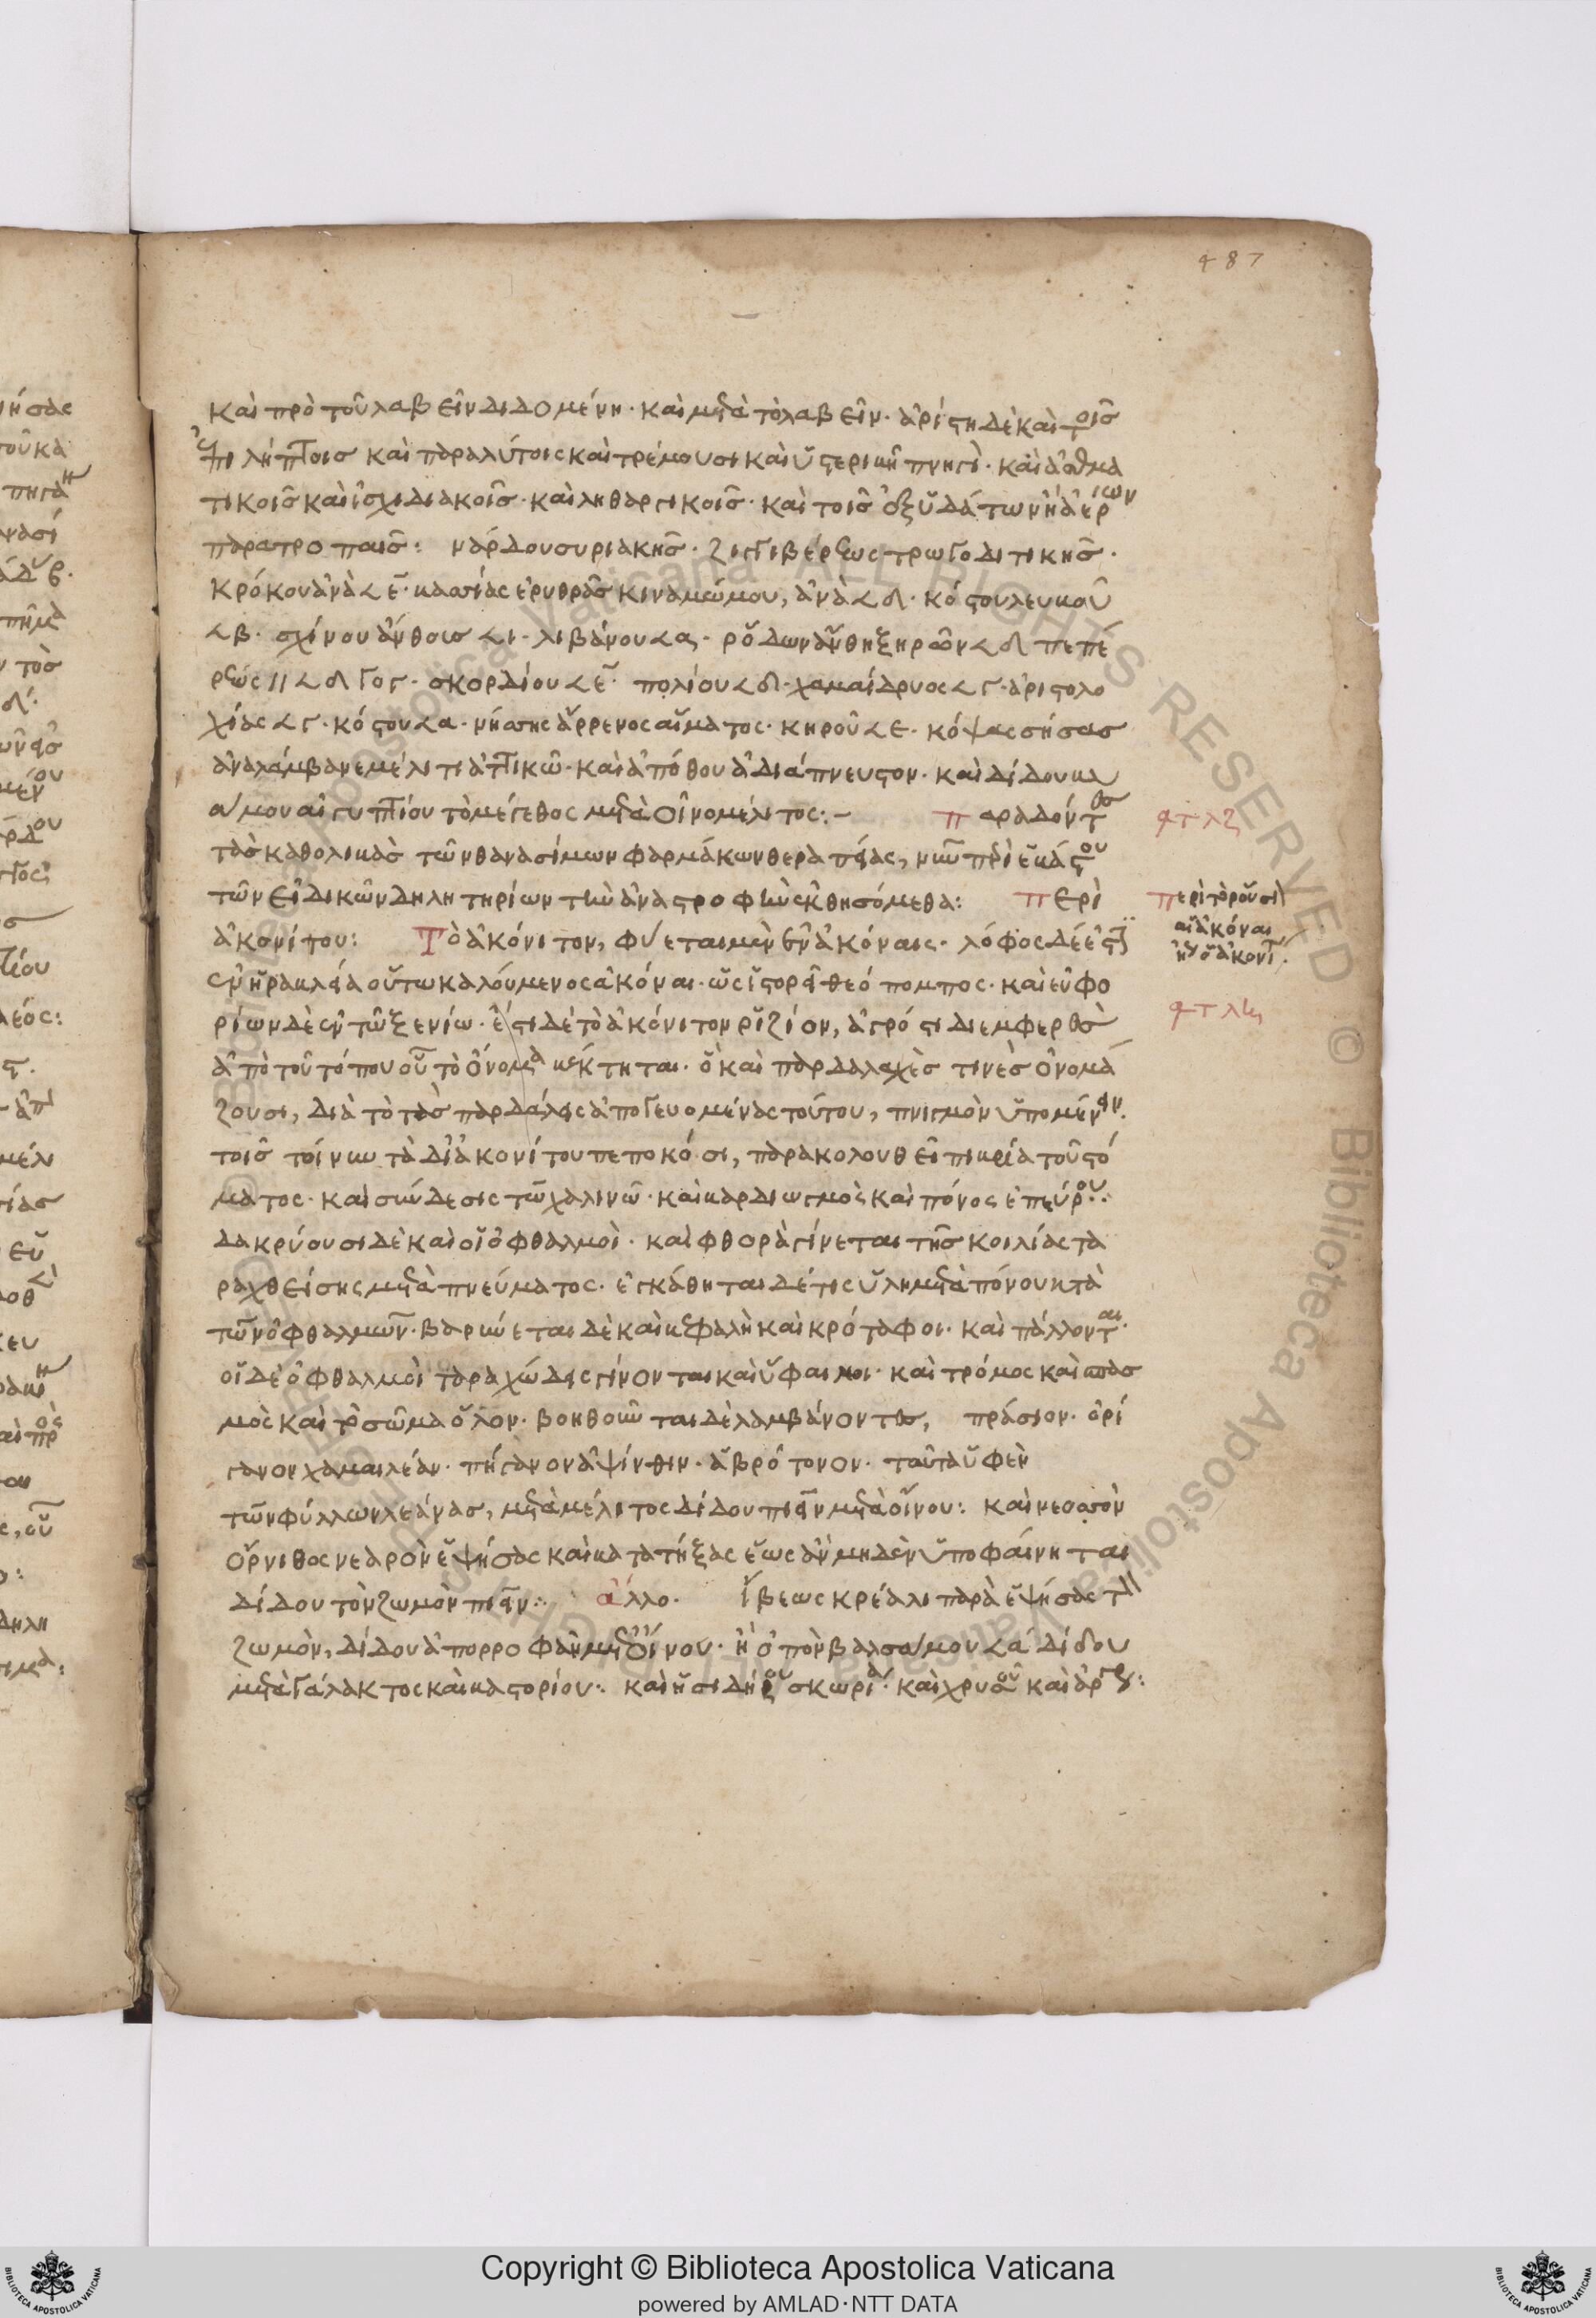 487
καὶ πρὸ τοῦ λαβεῖν διδομένη· καὶ μετὰ τὸ λαβεῖν· ἀρίστη δὲ καὶ τοῖς
ἐπιλήπτοις καὶ παραλύτοις καὶ τρέμουσι καὶ ὑστερικῆ πνηγὶ· καὶ ἀσθμα
τικοῖς καὶ ἰσχιδιακοῖς· καὶ ληθαργικοῖς· καὶ τοῖς ἐξ ὑδάτων ἢ ἀερίων
παρατροπαῖς: νάρδου συριακῆς· ζιγγιβέρεως τρωγοδιτικῆς·
κρόκου ἀνὰ 𐅻 ε· κασίας ἐρυθρᾶς κιναμώμου, ἀνὰ 𐅻 δ· κόστου λευκοῦ
𐅻 β· σχίνου ἄνθους 𐅻 ι· λιβάνου 𐅻 α· ῥόδων ἄνθη ξηρῶν 𐅻 δ πεπέ
ρεως 𐅻 δ σκορδίου 𐅻 ε· πολίου 𐅻 δ· χαμαίδρυος 𐅻 γ· ἀριστολο
χίας 𐅻 γ· κόστου 𐅻 α· νήσσης ἄρρενος αἵματος· κηροῦ 𐅻 ε· κόψας σήσας
ἀναλάμβανε μέλιτι ἀττικῶ· καὶ ἀπόθου ἀδιάπνευστον· καὶ δίδου κυ
άμου αἰγυπτίου τὸ μέγεθος μετὰ οἰνομέλιτος:–
Παραδόντες
φτλζ
τὰς καθολικὰς τῶν θανασίμων φαρμάκων θεραπείας, νῦν περὶ ἑκάστου
τῶν εἰδικῶν δηλητηρίων τὴν ἀναστροφὴν ἐκθησόμεθα: Περὶ
ἀκονίτου: Τὸ ἀκόνιτον, φύεται μὲν ἐν ἀκόναις· λόφος δέ ἐστιν
ἐν ἡρακλεία οὕτω καλούμενος ἀκόναι· ὡς ἱστορεῖ θεόπομπος· καὶ εὐφο
ρίων δὲ ἐν τῶ ξενίω· ἔστι δὲ τὸ ἀκόνιτον ῥιζίον, ἀγρόστι δι ἐμφερὲς
ἀπὸ τοῦ τόπου οὗ τὸ ὄνομα κέκτηται· ὃ καὶ παρδαλαγχὲς τινὲς ὀνομά
ζουσι, διὰ τὸ τὰς παρδάλεις ἀπογευομένας τούτου, πνιγμὸν ὑπομένειν.
τοῖς τοίνυν τὰ δι᾽ ἀκονίτου πεποκόσι, παρακολουθεῖ πικρία τοῦ στό
ματος· καὶ σύνδεσις τῶν χαλινῶν· καὶ καρδιωγμὸς καὶ πόνος
δακρύουσι δὲ καὶ οἱ ὀφθαλμοὶ· καὶ φθορὰ γίνεται τῆς κοιλίας τα
ραχθείσης μετὰ πνεύματος· ἐγκάθηται δέ τις ὕλη μετὰ πόνου κατὰ
τῶν ὀφθαλμῶν· βαρύνεται δὲ καὶ κεφαλὴ καὶ κρόταφοι· καὶ πάλλονται·
οἱ δὲ ὀφθαλμοὶ ταραχώδεις γίνονται καὶ ὕφαιμοι· καὶ τρόμος καὶ σπασ
μὸς καὶ τὸ σῶμα ὅλον· βοηθοῦνται δὲ λαμβάνοντες, πράσιον· ὀρί
γανον χαμαιλέαν· πήγανον ἀψίνθιν· ἀβρότονον· ταῦτα ὑφ᾽ ἓν
τῶν φύλλων λεάνας, μετὰ μέλιτος δίδου πιεῖν μετὰ οἴνου: καὶ νεοσσὸν
ὄρνιθος νεαρὸν ἑψήσας καὶ κατατήξας ἕως ἂν μηδὲν ὑποφαίνηται
δίδου τὸν ζωμὸν πιεῖν: ἄλλο· ἴβεως κρέα λιπαρὰ ἑψήσας τὸν
ζωμὸν, δίδου ἀπορροφᾶν μετ᾽ οἴνου· ἢ ὀπὸν βαλσάμου 𐅻 α δίδου
μετὰ γάλακτος καὶ καστορίου: καὶ ἡ σιδήρου σκωρία· καὶ χρυσοῦ καὶ ἀργύρου:
περὶ τὸ ὄρους
αἱ ἀκόναι
φτλη